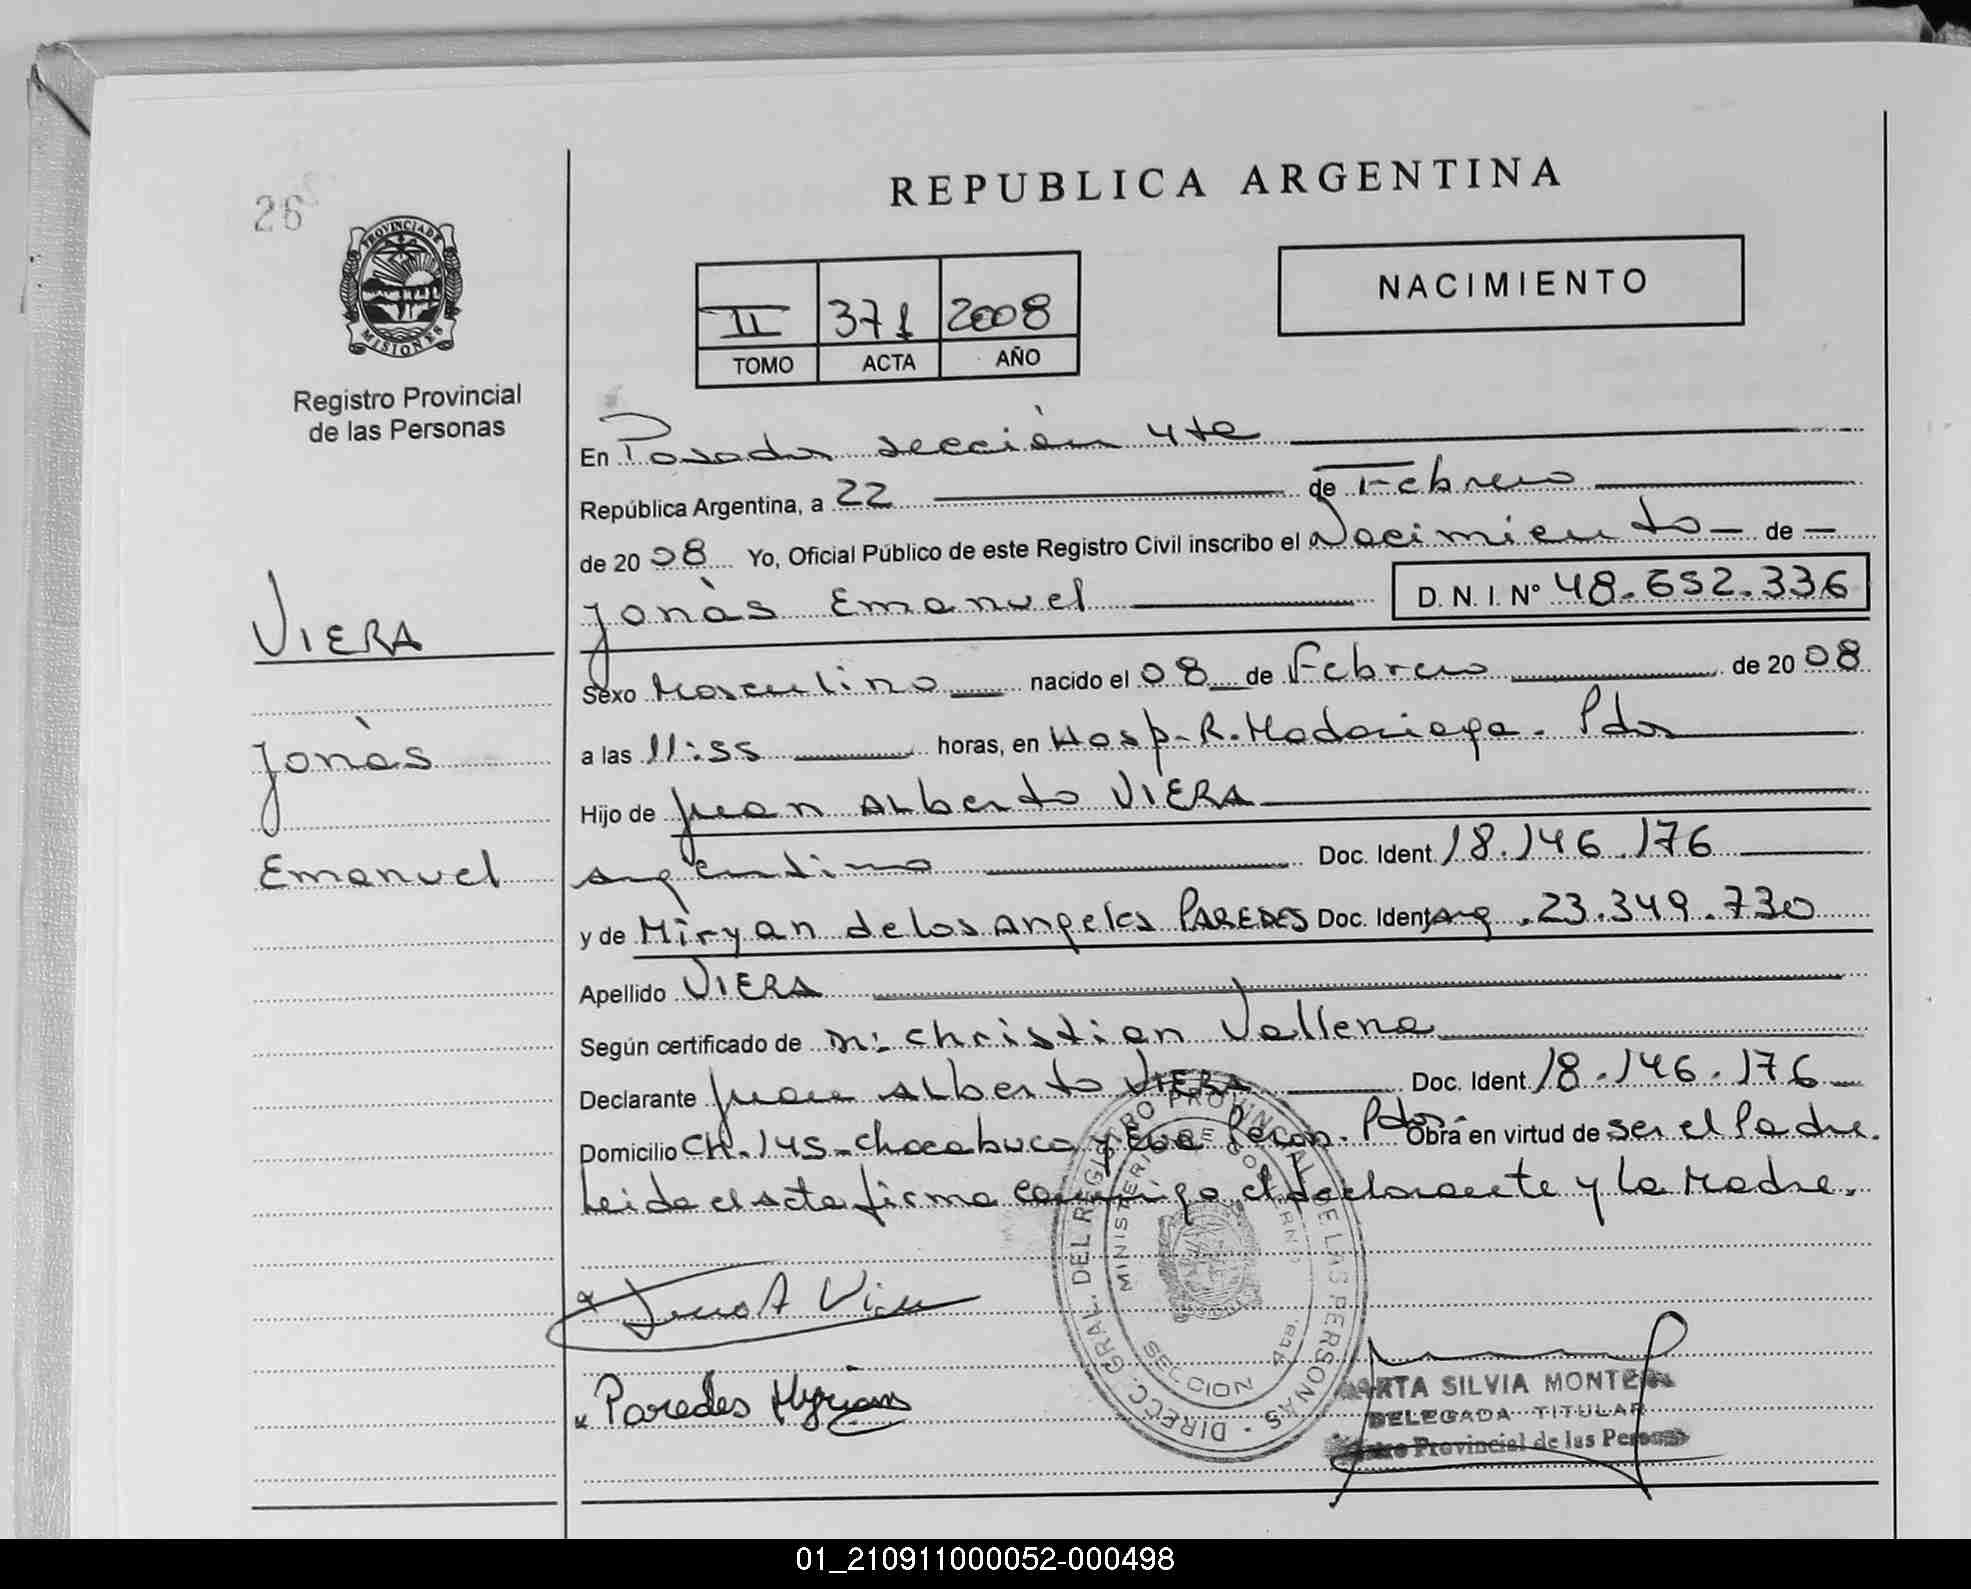 26
REPUBLICA ARGENTINA
PROVINCIA DE
MISIONES
Registro Provincial
de las Personas
II 371 2008
TOMO ACTA AÑO
NACIMIENTO
En Posadas sección 4ta
República Argentina, a 22 de Febrero
de 2008 Yo, Oficial Público de este Registro Civil inscribo el Nacimiento de
Jonàs Emanuel D. N. I. Nº 48.652.336
VIERA
Jonàs
Emanuel
Sexo Masculino nacido el 08 de Febrero de 2008
a las 11:55 horas, en Hosp. R. Madariaga. Pdas
Hijo de Juan Alberto VIERA
argentino Doc. Ident. 18.146.176
y de Miryan de los Angeles PAREDES Doc. Ident. Arg. 23.349.730
Apellido VIERA
Según certificado de Christian Vallena
Declarante Juan Alberto VIERA Doc. Ident. 18.146.176
Domicilio CH. 145 - Chacabuco y Eva Peron. Pdas. Obra en virtud de ser el Padre.
Leida el acta firma conmigo el declarante y la Madre.
Juan A Viera
Paredes Myrian
DIRECC. GRAL. DEL REGISTRO PROVINCIAL DE LAS PERSONAS
MINISTERIO DE GOBIERNO
SECCION 4ta.
MARTA SILVIA MONTE
DELEGADA TITULAR
Provincial de las Personas
01_210911000052-000498